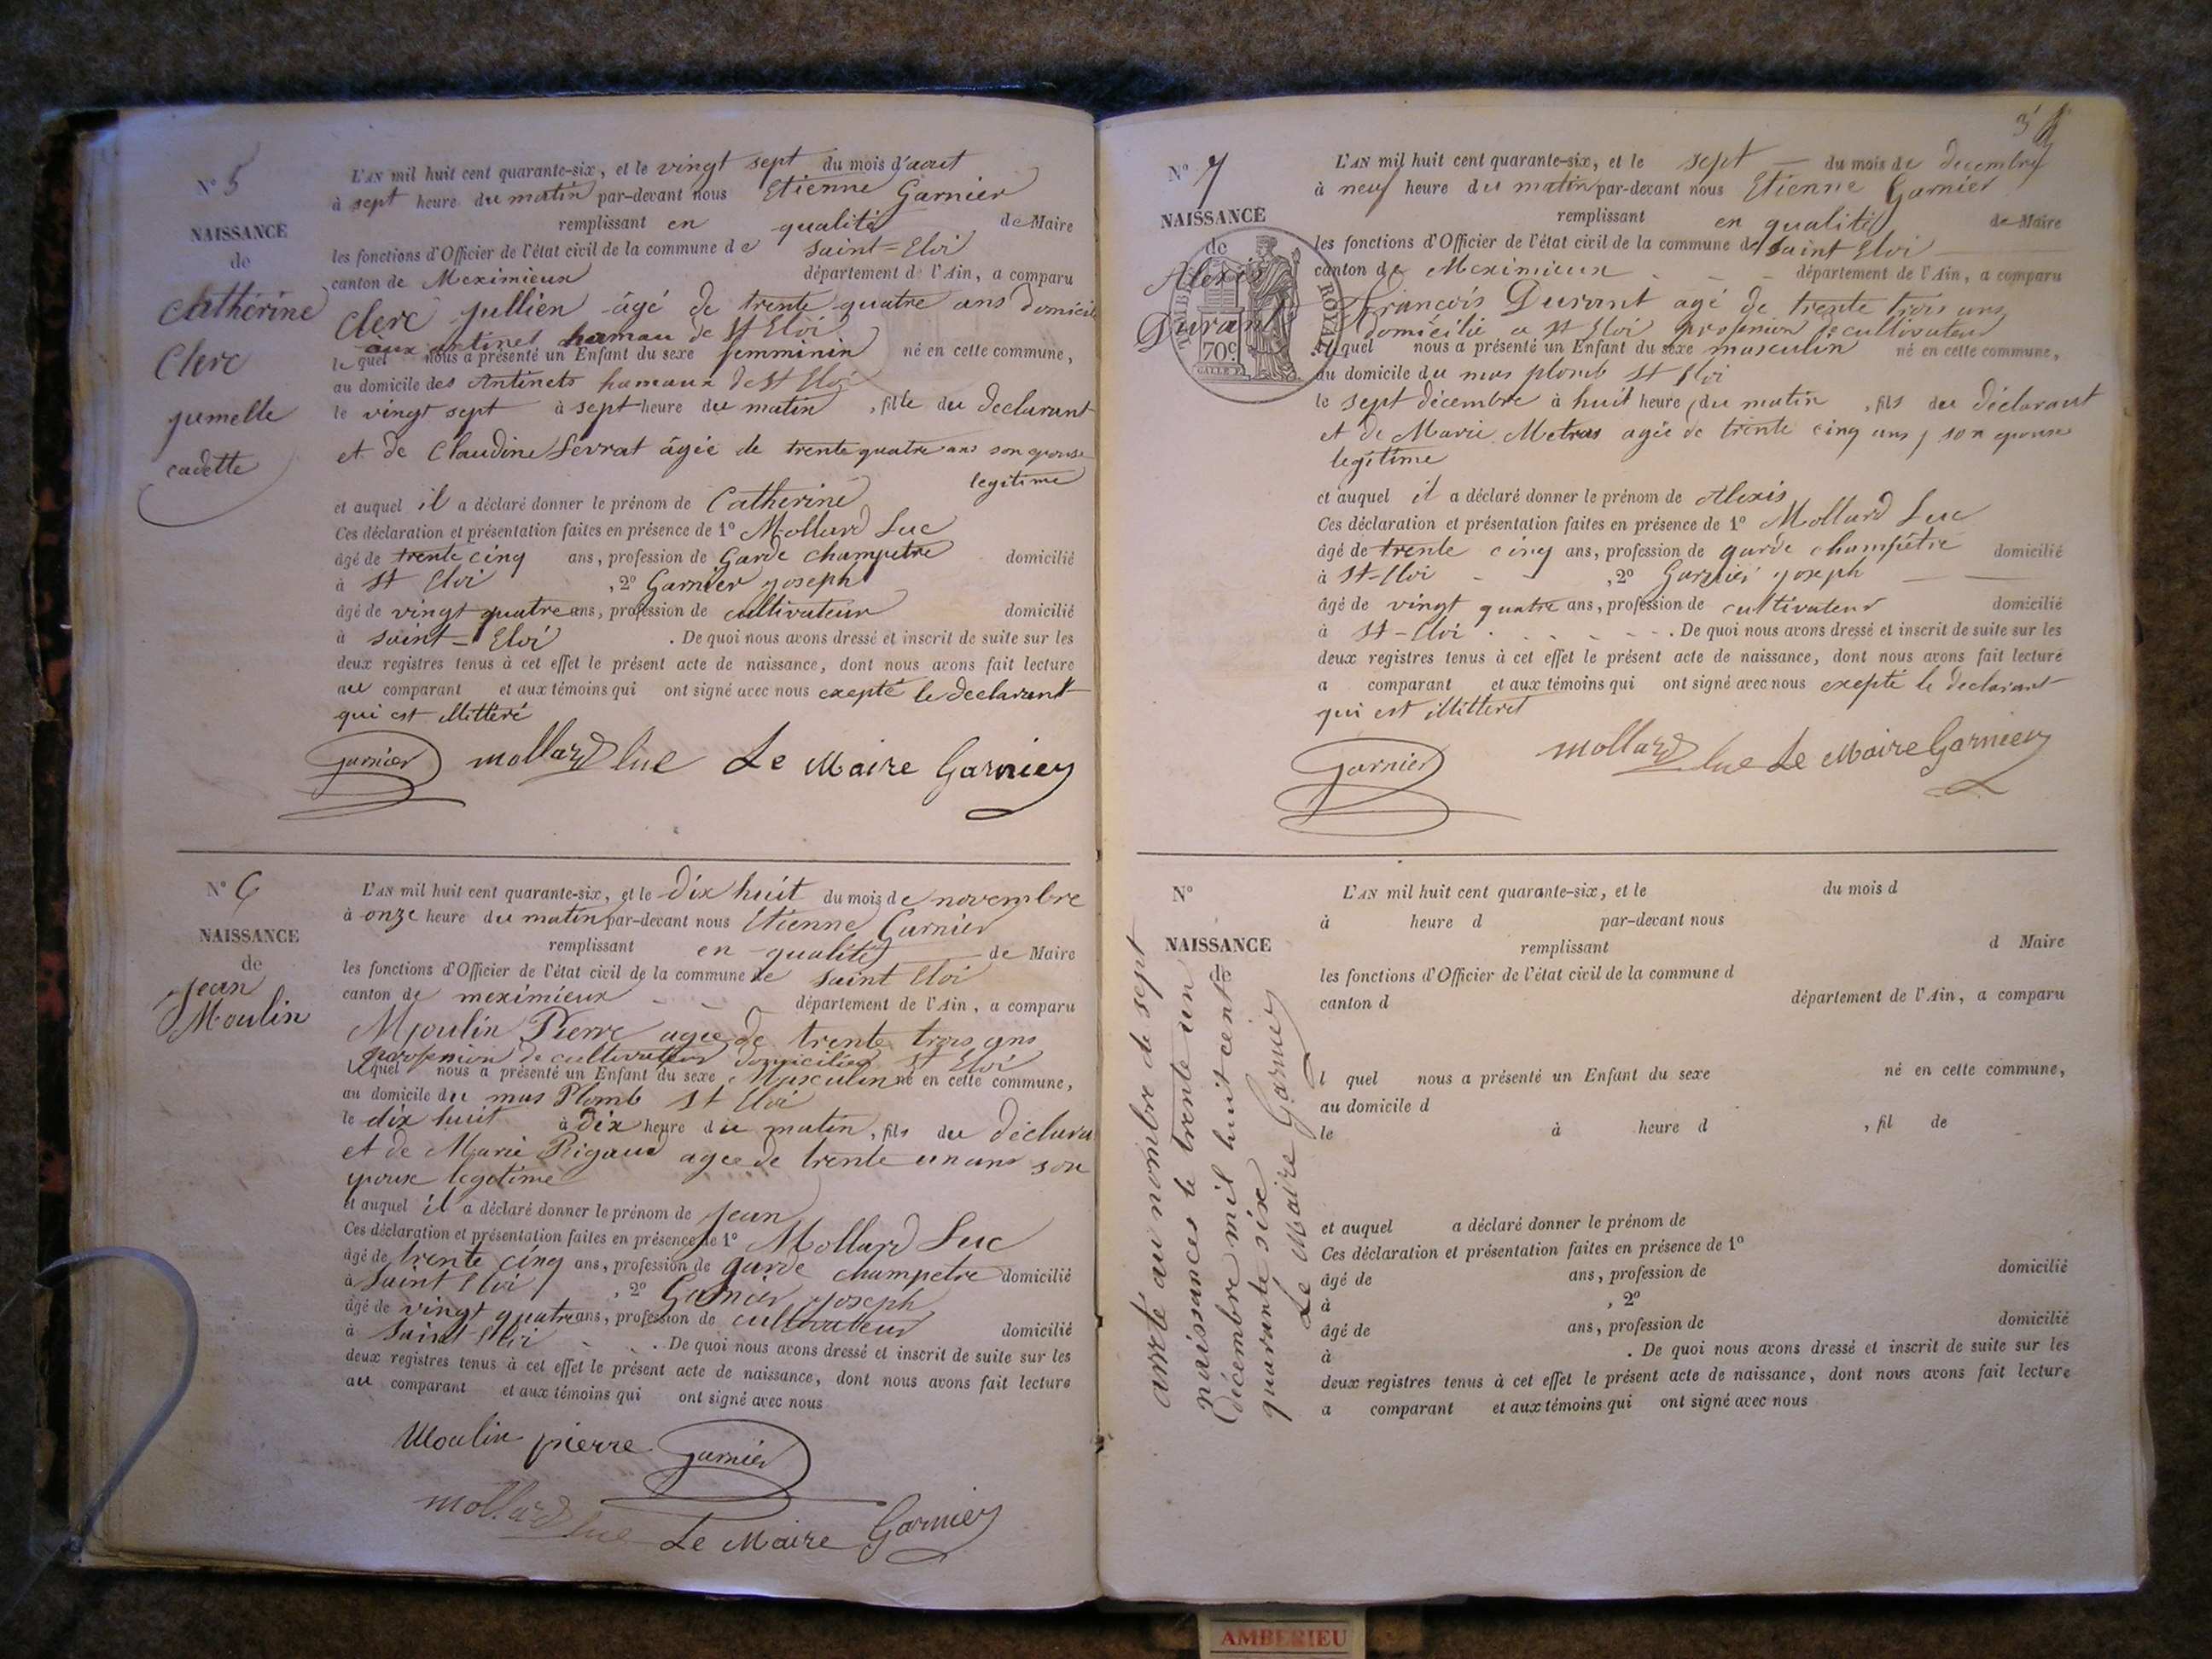 N° 5
NAISSANCE
de
Cathérine
Clerc
jumelle
cadette
L'AN mil huit cent quarante-six, et le vingt sept du mois d'aout
à sept heure du matin par-devant nous Etienne Garnier
remplissant en qualité de Maire
les fonctions d'Officier de l'état civil de la commune de Saint=Eloi
canton de Meximieux département de l'Ain, a comparu
Clerc jullien âgé de trente quatre ans domicil
aux antinet hamau de St Eloi
lequel nous a présenté un Enfant du sexe femminin né en cette commune,
au domicile des Antinets hamaux de St Eloi
le vingt sept à sept heure du matin, fille du declarant
et de Claudine Sevrat âgée de trente quatre ans son epouse
legitime
et auquel il a déclaré donner le prénom de Catherine
Ces déclaration et présentation faites en présence de 1° Mollard Luc
âgé de trente cinq ans, profession de Garde champetre domicilié
à St Eloi, 2° Garnier joseph
âgé de vingt quatre ans, profession de cultivateur domicilié
à saint=Eloi . De quoi nous avons dressé et inscrit de suite sur les
deux registres tenus à cet effet le présent acte de naissance, dont nous avons fait lecture
au comparant et aux témoins qui ont signé avec nous exepté le declarant
qui est illitteré
Garnier mollard luc Le Maire Garnier
N° 6
NAISSANCE
de
Jean
Moulin
L'AN mil huit cent quarante-six, et le dix huit du mois de novembre
à onze heure du matin par-devant nous Etienne Garnier
remplissant en qualité de Maire
les fonctions d'Officier de l'état civil de la commune de saint Eloi
canton de meximieux département de l'Ain, a comparu
Moulin Pierre agée de trente trois ans
profession de cultivateur domicilié St Eloi
lequel nous a présenté un Enfant du sexe Masculin né en cette commune,
au domicile du mas Plomb St Eloi
le dix huit à dix heure du matin, fils du déclara
et de Marie Rigaud agee de trente un ans son
epouse legetime
et auquel il a déclaré donner le prénom de Jean
Ces déclaration et présentation faites en présence de 1° Mollard Luc
âgé de trente cinq ans, profession de garde champetre domicilié
à Saint Eloi, 2° Garnier joseph
âgé de vingt quatre ans, profession de cultivateur domicilié
à Saint Eloi . De quoi nous avons dressé et inscrit de suite sur les
deux registres tenus à cet effet le présent acte de naissance, dont nous avons fait lecture
au comparant et aux témoins qui ont signé avec nous
Moulin pierre Garnier
mollard luc Le Maire Garnier
3
N° 7
NAISSANCE
de
Alexis
Durant
TIMBRE ROYAL
70c
L'AN mil huit cent quarante-six, et le sept du mois de decembre
à neuf heure du matin par-devant nous Etienne Garnier
remplissant en qualité de Maire
les fonctions d'Officier de l'état civil de la commune de saint Eloi
canton de Meximieux département de l'Ain, a comparu
francois Durant agé de trente trois ans
domicilié a St Eloi profession de cultivateur
lequel nous a présenté un Enfant du sexe masculin né en cette commune,
au domicile du mas plomb St Eloi
le sept décembre à huit heure du matin, fils du déclarant
et de Marie Metras agée de trente cinq ans, son epouse
legitime
et auquel il a déclaré donner le prénom de Alexis
Ces déclaration et présentation faites en présence de 1° Mollard Luc
âgé de trente cinq ans, profession de garde champétre domicilié
à St-Eloi, 2° Garnier joseph
âgé de vingt quatre ans, profession de cultivateur domicilié
à St-Eloi . De quoi nous avons dressé et inscrit de suite sur les
deux registres tenus à cet effet le présent acte de naissance, dont nous avons fait lecture
a comparant et aux témoins qui ont signé avec nous exepté le declarant
qui est illitteret
Garnier mollard luc Le Maire Garnier
N°
NAISSANCE
de
arrété au nombre de sept
naissances le trente un
décembre mil huit cents
quarante sixe
Le Maire Garnier
L'AN mil huit cent quarante-six, et le du mois d
à heure d par-devant nous
remplissant d Maire
les fonctions d'Officier de l'état civil de la commune d
canton d département de l'Ain, a comparu
l quel nous a présenté un Enfant du sexe né en cette commune,
au domicile d
le à heure d , fil de
et auquel a déclaré donner le prénom de
Ces déclaration et présentation faites en présence de 1°
âgé de ans, profession de domicilié
à , 2°
âgé de ans, profession de domicilié
à . De quoi nous avons dressé et inscrit de suite sur les
deux registres tenus à cet effet le présent acte de naissance, dont nous avons fait lecture
a comparant et aux témoins qui ont signé avec nous
AMBERIEU